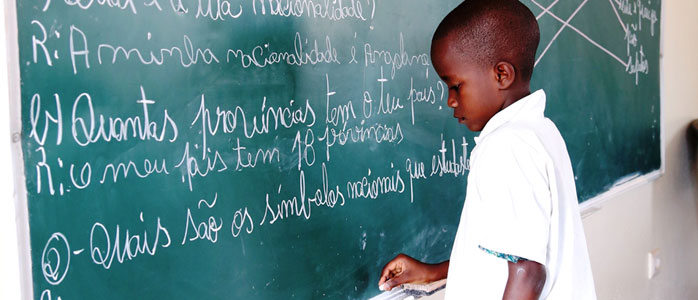 Qual é a tua nacionalidade?
R: A minha nacionalidade é Angolana
b) Quantas províncias tem o teu país?
R: O meu país tem 18 províncias
2- Quais são os símbolos nacionais que estuda